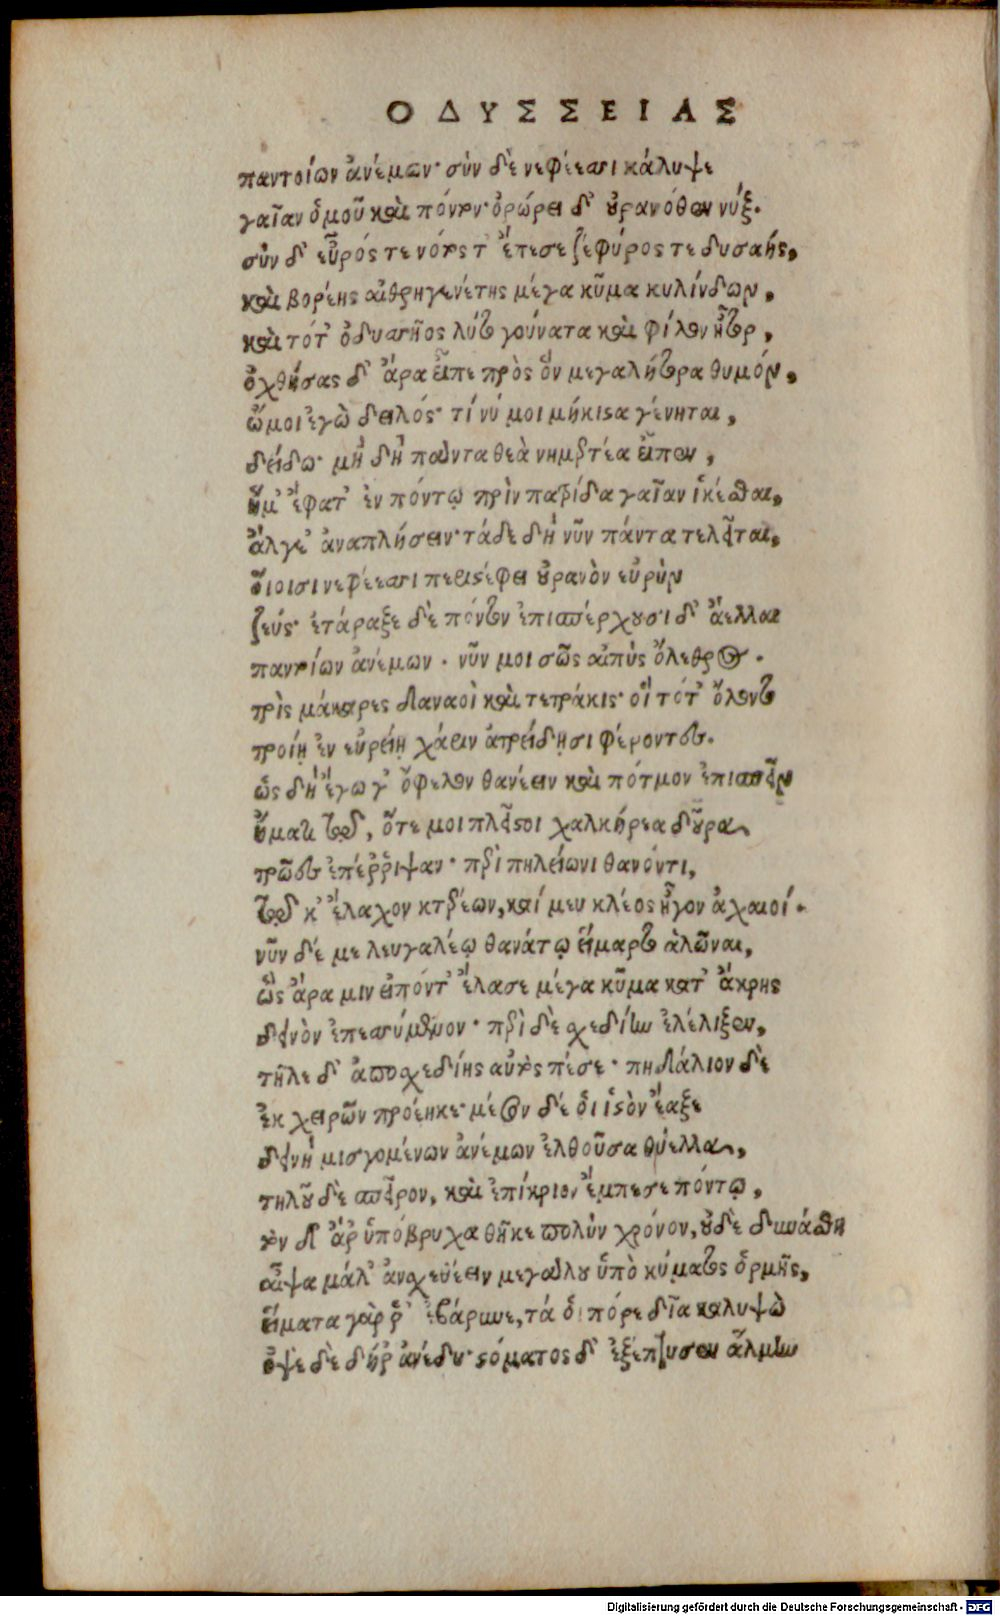 ΟΔΥΣΣΕΙΑΣ
παντοίων ἀνέμων· σὺν δὲ νεφέεσσι κάλυψε
γαῖαν ὁμοῦ καὶ πόντον· ὀρώρει δ' οὐρανόθεν νύξ.
σὺν δ' εὖρός τε νότος τ' ἔπεσε ζέφυρός τε δυσαής,
καὶ βορέης αἰθρηγενέτης μέγα κῦμα κυλίνδων,
καὶ τότ' ὀδυσσῆος λύτο γούνατα καὶ φίλον ἦτορ,
ὀχθήσας δ' ἄρα εἶπε πρὸς ὃν μεγαλήτορα θυμόν,
ὤμοι ἐγὼ δειλός· τί νύ μοι μήκιστα γένηται,
δείδω· μὴ δὴ πάντα θεὰ νημερτέα εἶπεν,
ἥ μ' ἔφατ' ἐν πόντῳ πρὶν πατρίδα γαῖαν ἱκέσθαι,
ἄλγε' ἀναπλήσειν· τάδε δὴ νῦν πάντα τελεῖται,
οἵοισι νεφέεσσι περιστέφει οὐρανὸν εὐρὺν
ζεύς· ἐτάραξε δὲ πόντον ἐπισπέρχουσι δ' ἄελλαι
παντοίων ἀνέμων. νῦν μοι σῶς αἰπὺς ὄλεθρος.
τρὶς μάκαρες δαναοὶ καὶ τετράκις· οἳ τότ' ὄλοντο
τροίῃ ἐν εὐρείῃ χάριν ἀτρείδῃσι φέροντες.
ὡς δὴ ἔγωγ' ὄφελον θανέειν καὶ πότμον ἐπισπεῖν
ἤματι τῷ, ὅτε μοι πλεῖστοι χαλκήρεα δοῦρα
τρῶες ἐπέρριψαν· περὶ πηλείωνι θανόντι,
τῷ κ' ἔλαχον κτερέων, καί μευ κλέος ἦγον ἀχαιοί.
νῦν δέ με λευγαλέῳ θανάτῳ εἵμαρτο ἁλῶναι,
ὣς ἄρα μιν εἰπόντ' ἔλασε μέγα κῦμα κατ' ἄκρης
δεινὸν ἐπεσσύμενον· περὶ δὲ σχεδίην ἐλέλιξεν,
τῆλε δ' ἀπὸ σχεδίης αὐτὸς πέσε· πηδάλιον δὲ
ἐκ χειρῶν προέηκε· μέσον δέ οἱ ἱστὸν ἔαξε
δεινὴ μισγομένων ἀνέμων ἐλθοῦσα θύελλα,
τηλοῦ δὲ σπεῖρον, καὶ ἐπίκριον ἔμπεσε πόντῳ,
τὸν δ' ἄρ' ὑπόβρυχα θῆκε πολὺν χρόνον, οὐδὲ δυνάσθη
αἶψα μάλ' ἀνσχεθέειν μεγάλου ὑπὸ κύματος ὁρμῆς,
εἵματα γάρ ῥ' ἐβάρυνε, τά οἱ πόρε δῖα καλυψὼ
ὀψὲ δὲ δή ῥ' ἀνέδυ· στόματος δ' ἐξέπτυσεν ἅλμην
Digitalisierung gefördert durch die Deutsche Forschungsgemeinschaft - DFG